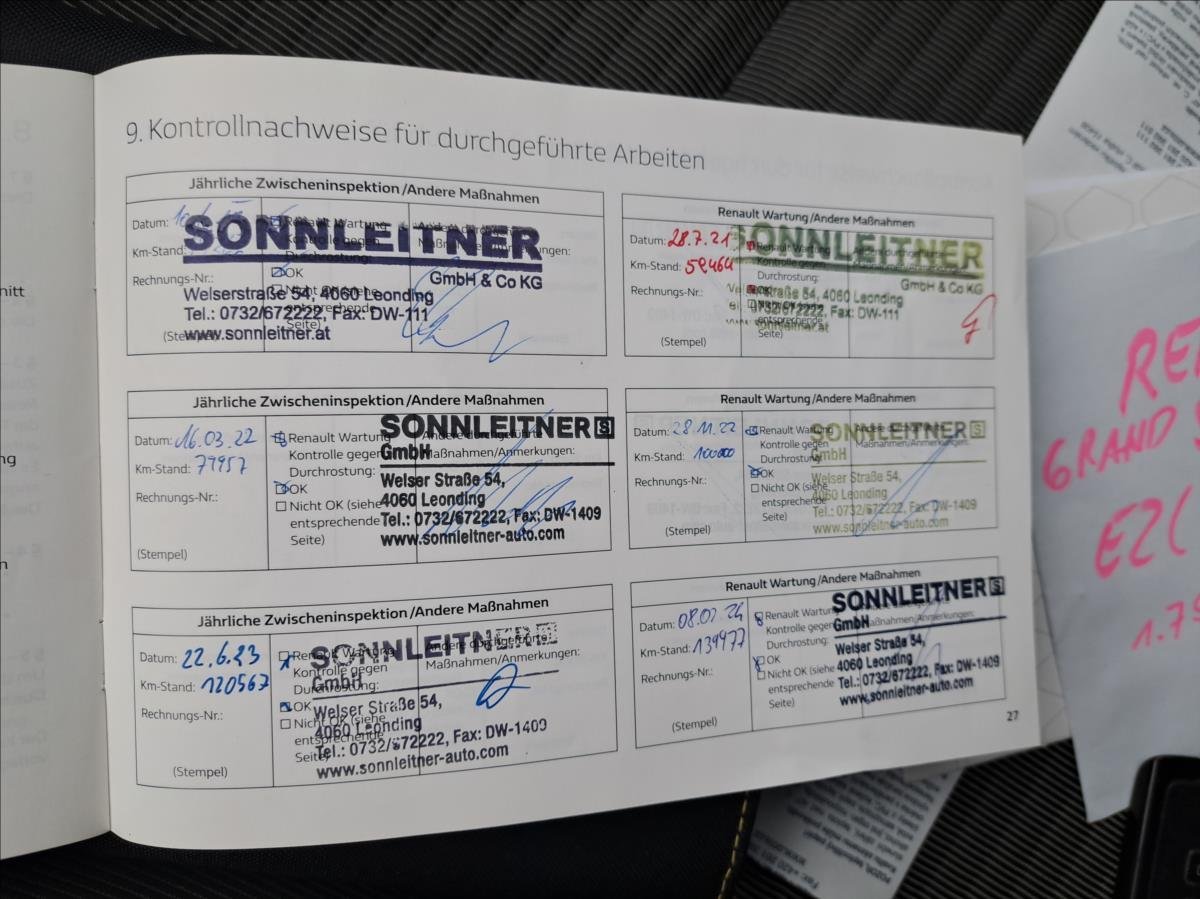 9. Kontrollnachweise für durchgeführte Arbeiten
Jährliche Zwischeninspektion/Andere Maßnahmen
Datum:
Km-Stand:
Rechnungs-Nr.:
Renault Wartung
Kontrolle gegen
Durchrostung:
OK
Nicht OK (siehe
entsprechende
Seite)
SONNLEITNER
GmbH & Co KG
Welserstraße 54, 4060 Leonding
Tel.: 0732/672222, Fax: DW-111
www.sonnleitner.at
Renault Wartung/Andere Maßnahmen
Datum: 28.7.21
Km-Stand: 59464
Rechnungs-Nr.:
(Stempel)
Renault Wartung
Kontrolle gegen
Durchrostung:
OK
Nicht OK (siehe
entsprechende
Seite)
SONNLEITNER
GmbH & Co KG
54, 4060 Leonding
0732/672222, Fax: DW-111
sonnleitner.at
Jährliche Zwischeninspektion/Andere Maßnahmen
Datum: 16.03.22
Km-Stand: 79957
Rechnungs-Nr.:
(Stempel)
Renault Wartung
Kontrolle gegen
Durchrostung:
OK
Nicht OK (siehe
entsprechende
Seite)
Andere durchgeführte
Maßnahmen/Anmerkungen:
SONNLEITNER S
GmbH
Welser Straße 54,
4060 Leonding
Tel.: 0732/672222, Fax: DW-1409
www.sonnleitner-auto.com
Renault Wartung/Andere Maßnahmen
Datum: 28.11.22
Km-Stand: 100000
Rechnungs-Nr.:
(Stempel)
Renault Wartung
Kontrolle gegen
Durchrostung:
OK
Nicht OK (siehe
entsprechende
Seite)
Maßnahmen/Anmerkungen:
SONNLEITNER S
GmbH
Welser Straße 54,
4060 Leonding
Tel.: 0732/672222, Fax: DW-1409
www.sonnleitner-auto.com
Jährliche Zwischeninspektion/Andere Maßnahmen
Datum: 22.6.23
Km-Stand: 120567
Rechnungs-Nr.:
(Stempel)
Renault Wartung
Kontrolle gegen
Durchrostung:
OK
Nicht OK (siehe
entsprechende
Seite)
Andere durchgeführte
Maßnahmen/Anmerkungen:
SONNLEITNER
GmbH
Welser Straße 54,
4060 Leonding
Tel.: 0732/672222, Fax: DW-1409
www.sonnleitner-auto.com
Renault Wartung/Andere Maßnahmen
Datum:
Km-Stand: 139977
Rechnungs-Nr.:
(Stempel)
Renault Wartung
Kontrolle gegen
Durchrostung:
OK
Nicht OK (siehe
entsprechende
Seite)
Maßnahmen/Anmerkungen:
SONNLEITNER S
GmbH
Welser Straße 54,
4060 Leonding
Tel.: 0732/672222, Fax: DW-1409
www.sonnleitner-auto.com
27
GRAND